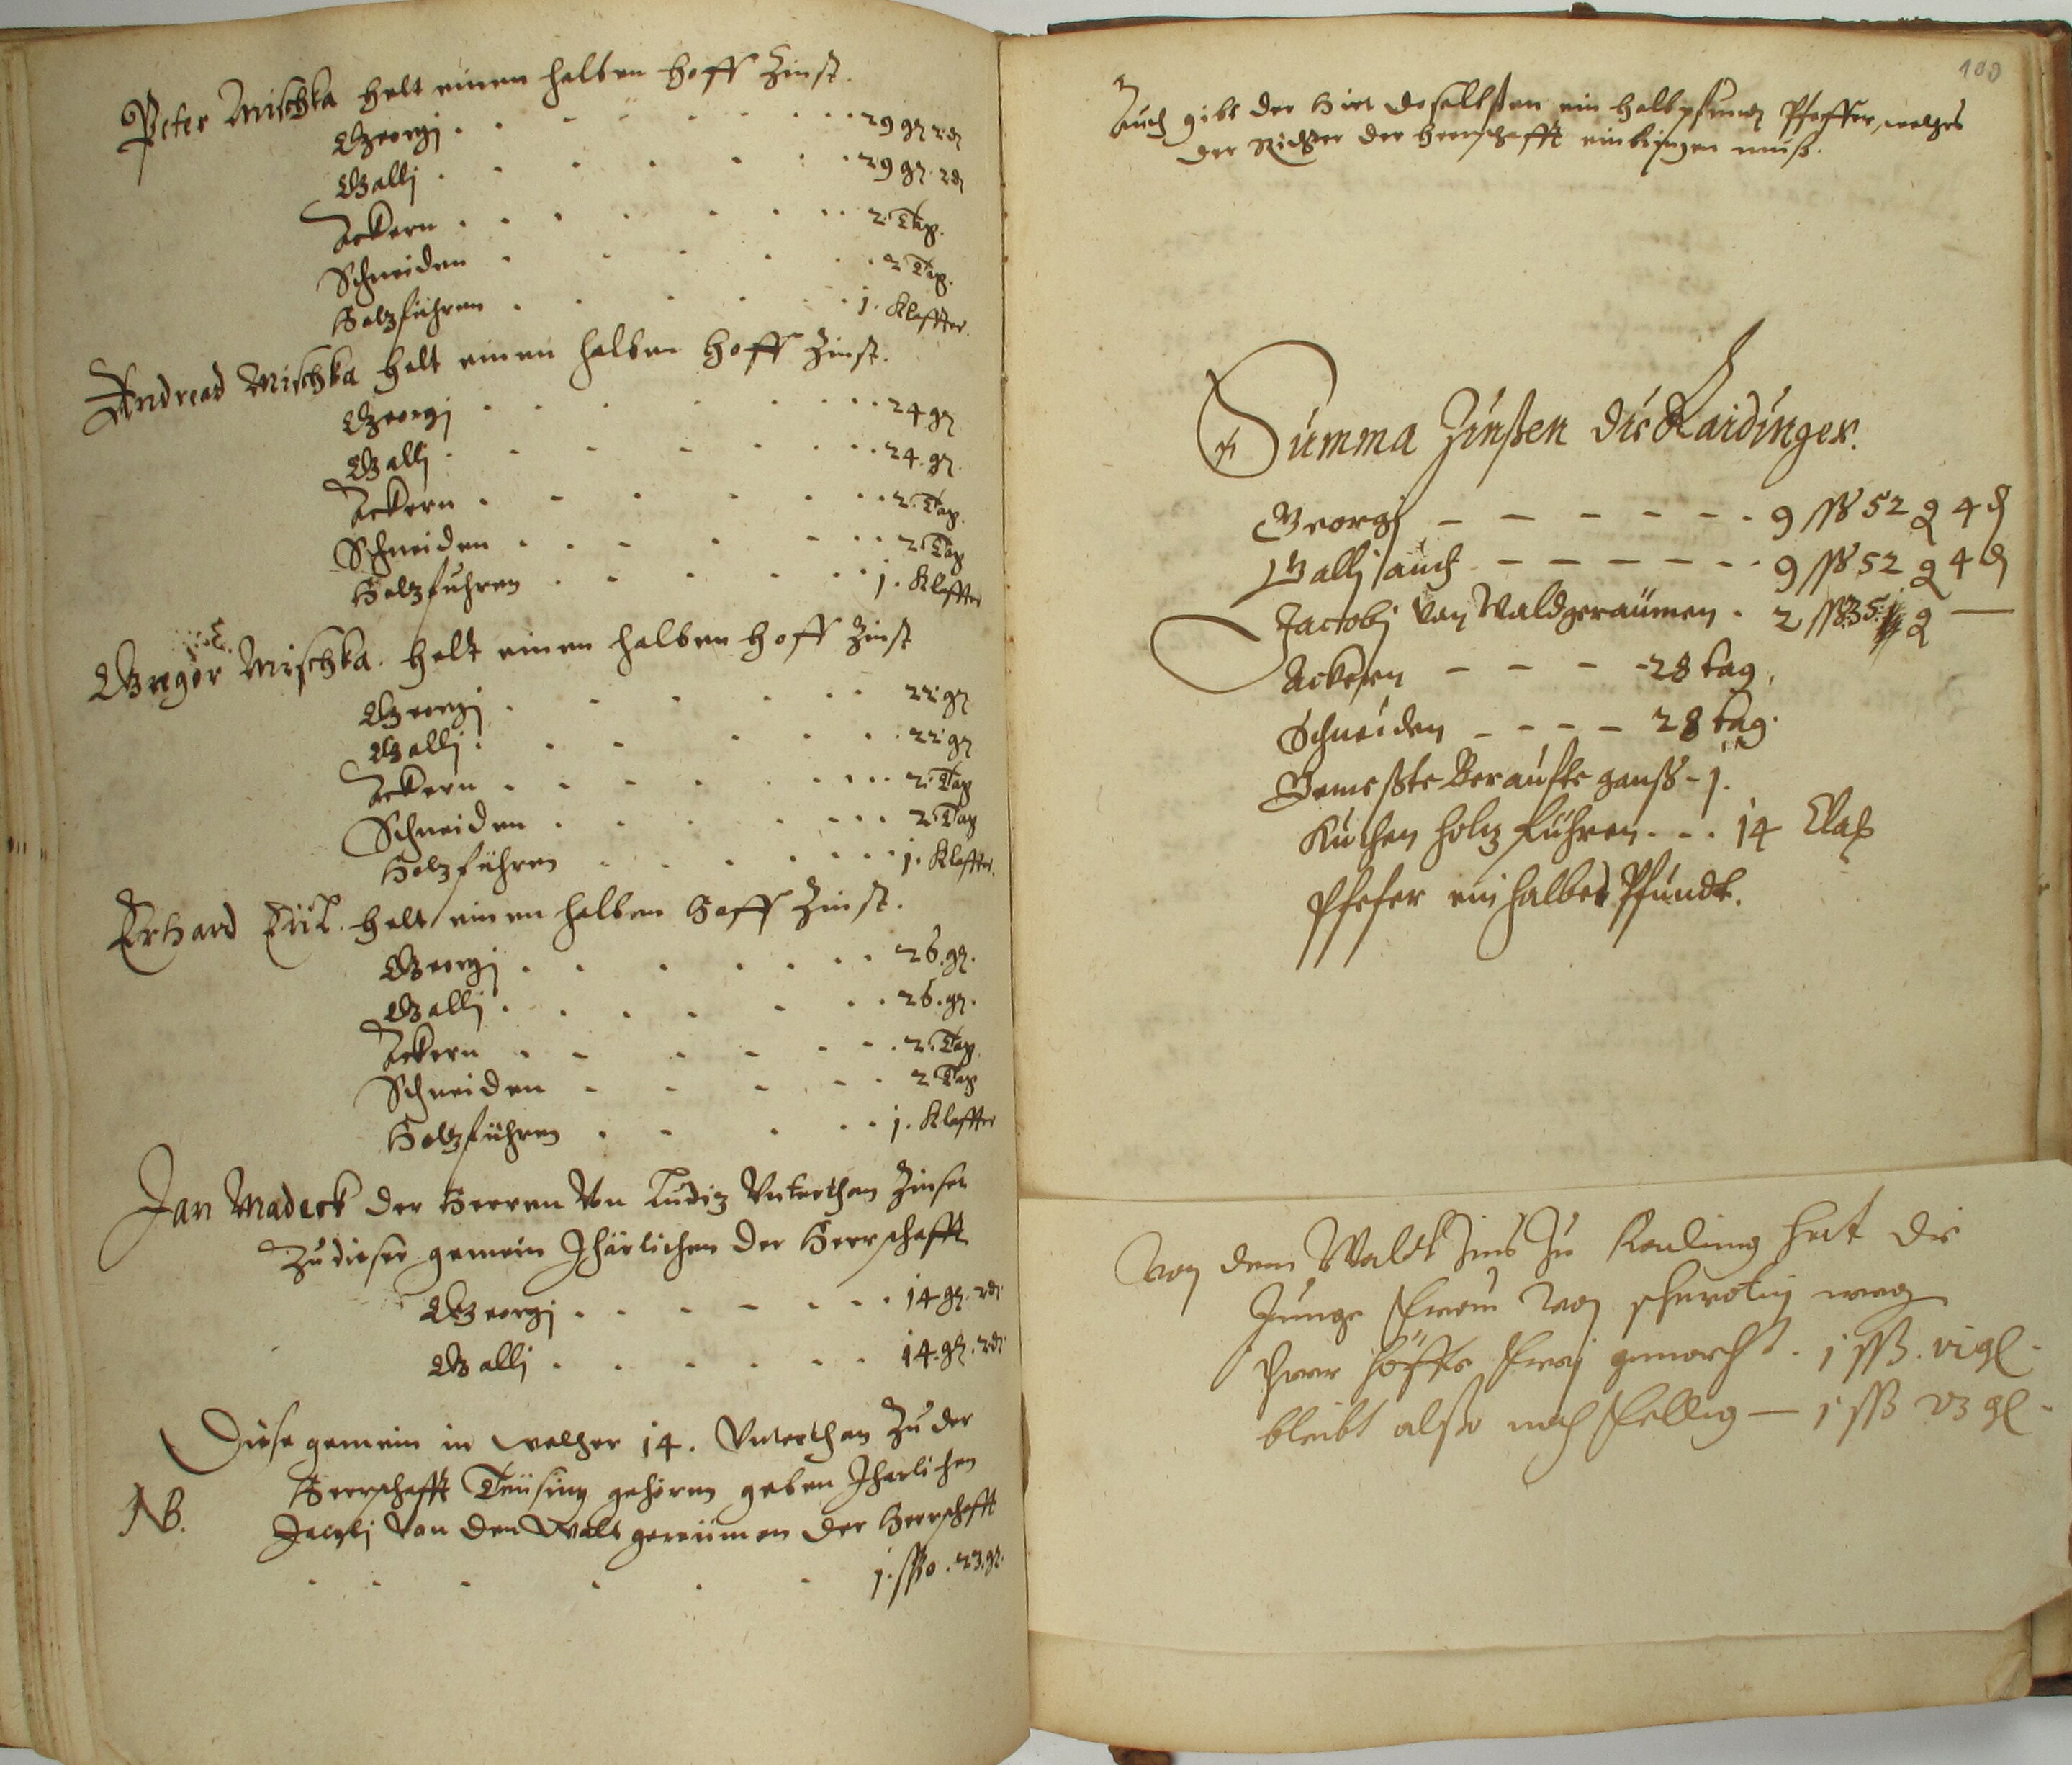 Peter Mischka helt einen halben Hoff Zinst.
Georgj . . . . . . . . 29 gr 2 d
Gallj . . . . . . . 29 gr. 2 d
Ackern . . . . . . . . 2. Tag.
Schneiden . . . . . 2 Tag.
Holzführen . . . . . . 1. Klaffter.
Andreas Mischka helt einen halben Hoff Zinst.
Georgj . . . . . . . . 24 gr
Gallj . . . . . . . . 24. gr.
Ackern . . . . . . . 2. Tag.
Schneiden . . . . . . 2. Tag
Holzführen . . . . . . 1. Klaffter
Gregor Mischka. helt einen halben Hoff Zinst
Georgj . . . . . . 22 gr
Gallj . . . . . . . 22 gr
Ackern . . . . . . . . . 2. Tag
Schneiden . . . . . . . 2. Tag
Holzführen . . . . . . . 1. Klaffter.
Erhard helt einen halben Hoff Zinst.
Georgj . . . . . . . 26. gr.
Gallj . . . . . . . 26. gr.
Ackern . . . . . . . 2. Tag.
Schneiden . . . . . 2 Tag
Holzführen . . . . . 1. Klaffter
Jan Madeck der Herren Von Ludiz Unterthan Zinset
Zu dieser gemein Jhärlichen der Herrschafft
Georgj . . . . . . . 14 gr. 2 d.
Gallj . . . . . . . 14. gr. 2 d.
Diese gemein in welcher 14. Unterthan Zu der
Herrschafft Teüsing gehören geben Jharlichen
NB. Jacobj Von den Walt gereümen der Herrschafft
. . . . . . 1. sso. 23. gr.
100
Auch gibt der Hirt daselbsten ein halb pfundt Pfeffer, welches
der Richter der Herrschafft einbringen muß.
Summa Zinßen die Raidinger.
Georgj – – – – – – . 9 ßß 52 g 4 d
Gallj auch – – – – – – . 9 ßß 52 g 4 d
Jacobj von Waldgeraümen . 2 ßß 35 g —
Ackern – – – – 28 tag.
Schneiden – – – – 28 tag.
Beraufte ganß – 1.
Kuchen holz führen . . . 14 Claf
Pfefer ein halbes Pfundt.
Von dem Waldt Zins Zu hat die
Junge Frau von scherotin weg
höffte frej gemacht. 1 ßß. gl.
bleibt alßo noch fellig — 1 ßß 23 gl.